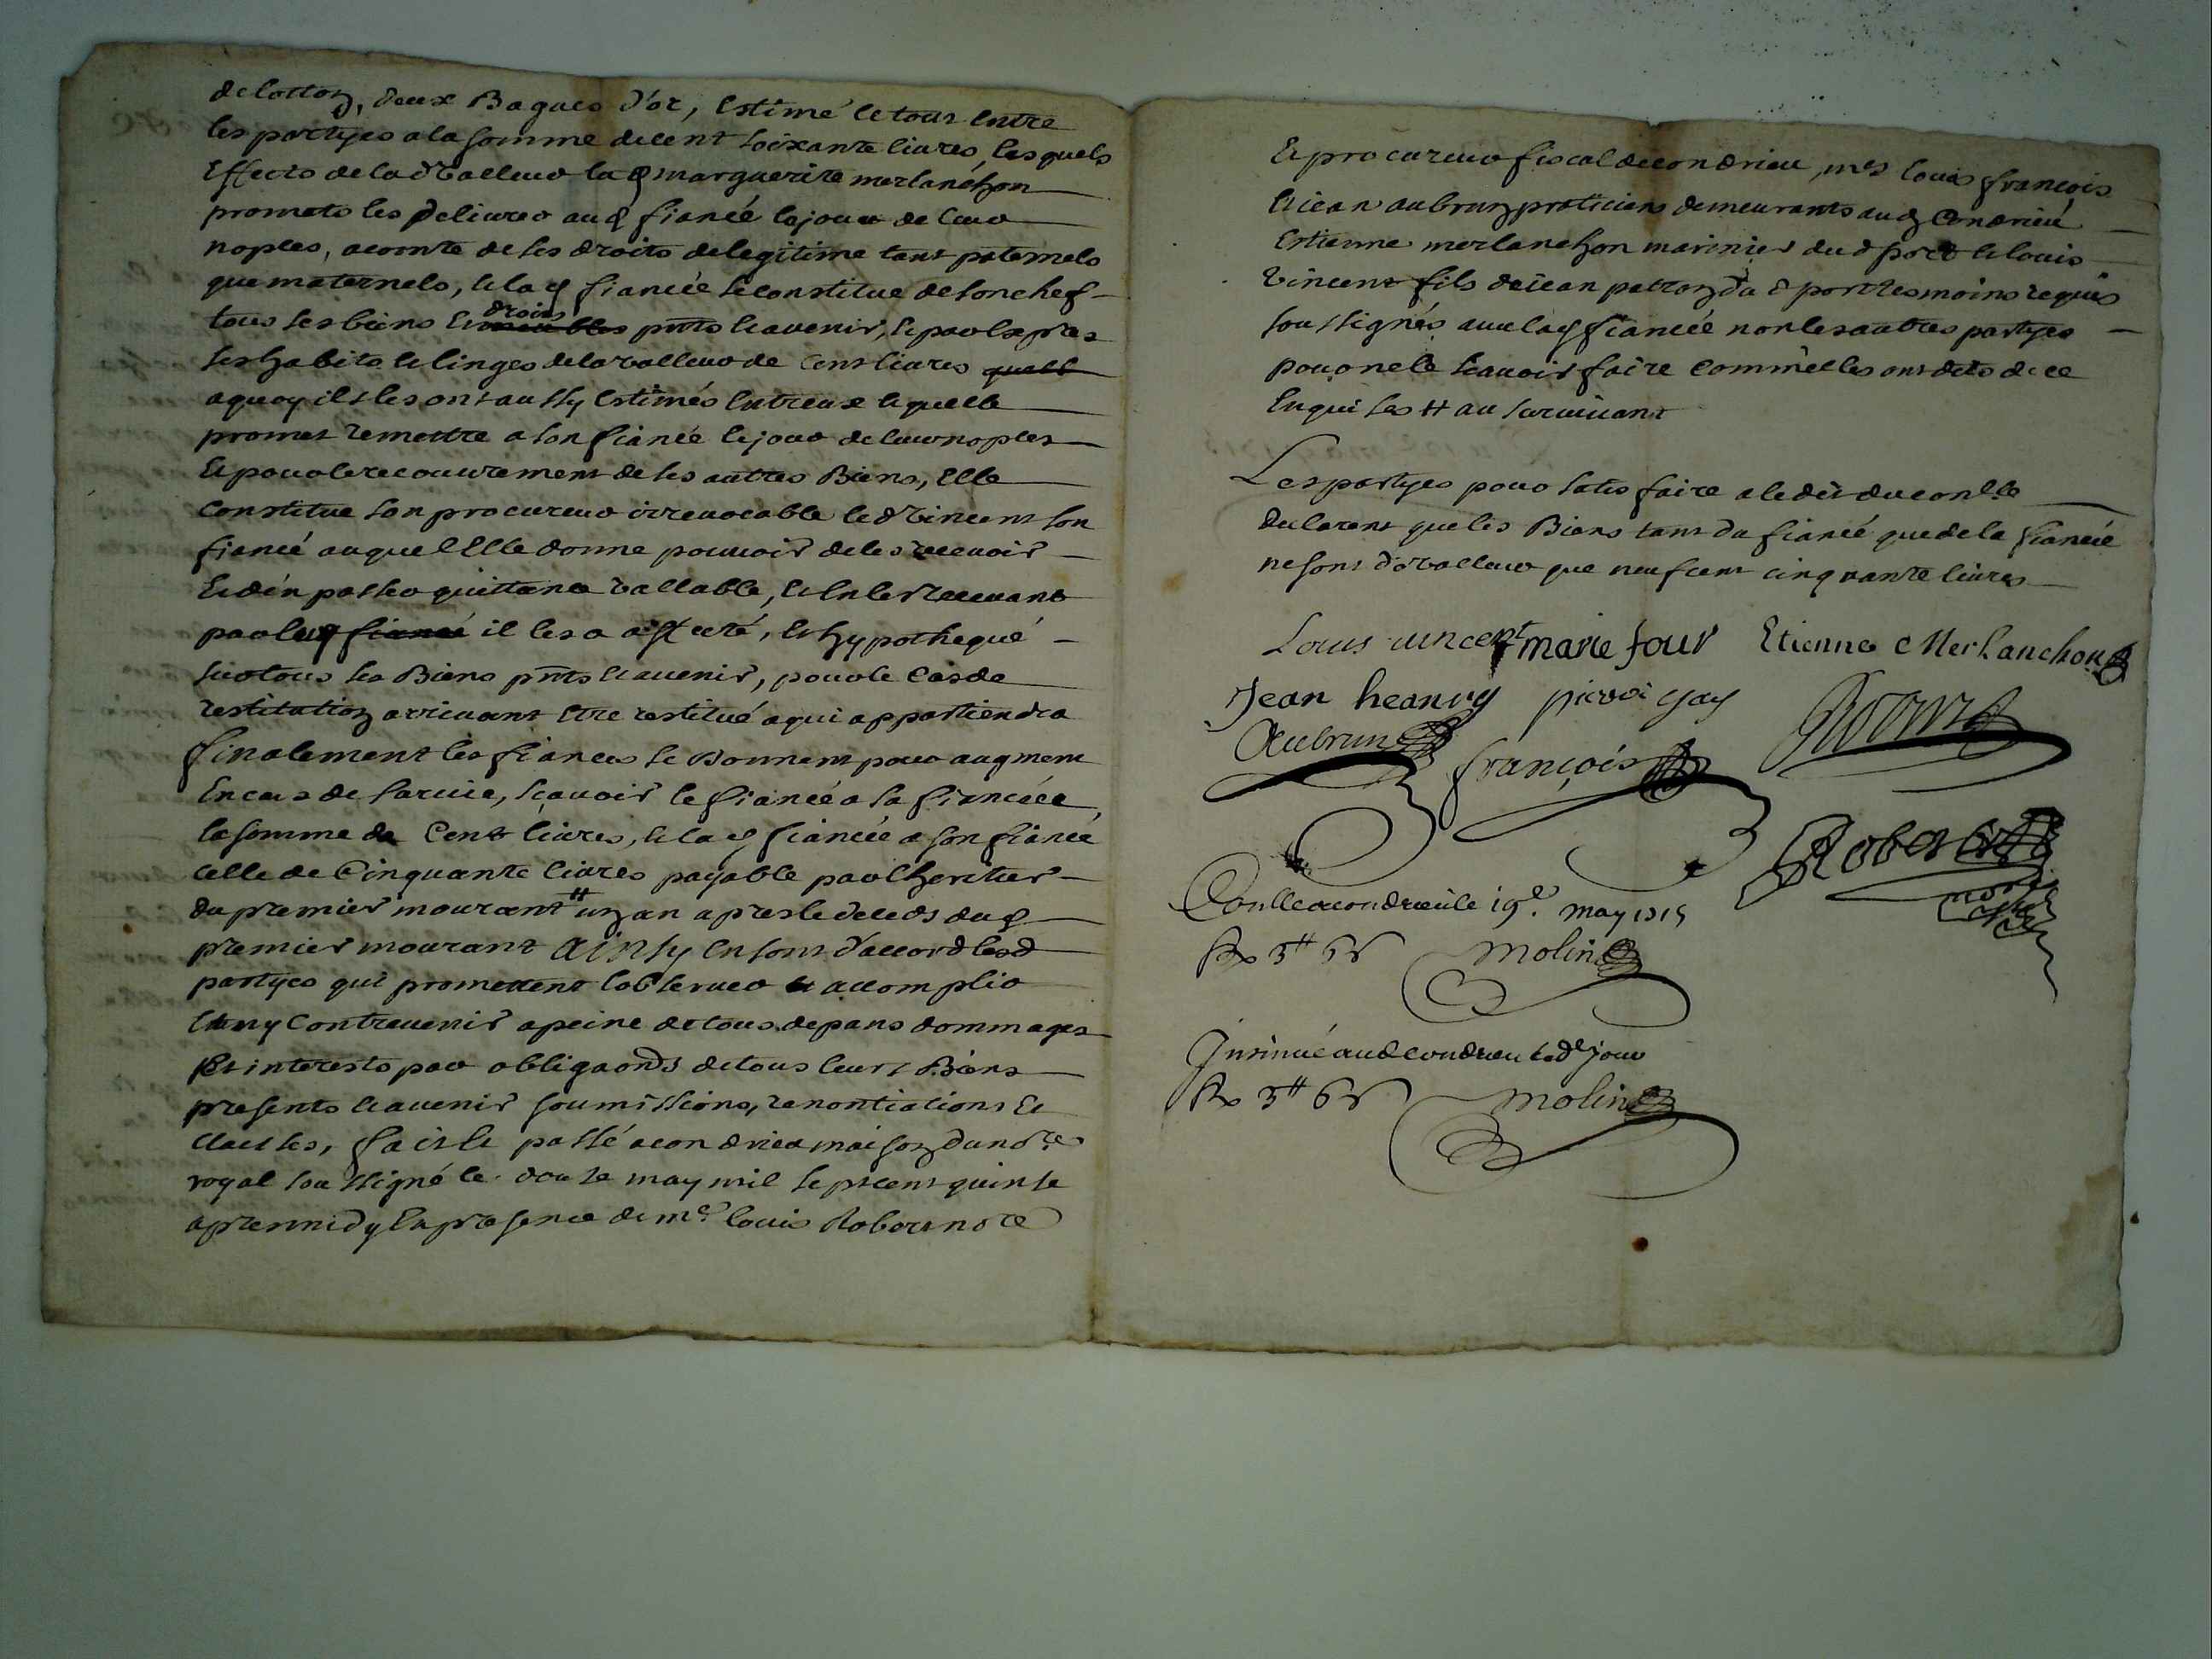 de cotton, deux Bagues d'or, Estimé le tout Entre
les partyes a la somme de cent soixante livres, lesquels
Effects de lad valleur lad marguerite merlanchon
promets les delivrer aud fiancé le jour de leur
noples, acomte de ses droits de legitime tant paternels
que maternels, et lad fiancée se constitue de son chef
tous ses biens et droits pnts et avenir, et par exprès
ses habits et linges de la valleur de Cent livres
a quoy ils les ont aussy Estimés Entreux laquelle
promet remettre a son fiancé le jour de leur noples
Et pour le recouvrement de ses autres Biens, Elle
Constitue son procureur irrevocable led Vincent son
fiancé auquel Elle donne pouvoir de les recevoir
Et d'en passer quittance vallable, et En les recevant
par il les a affecté, et hypothequé
sur tous ses Biens pnts et avenir, pour le Cas de
restitution arrivant Etre restitué a qui appartiendra
finalement les fiances se donnent pour augment
En cas de survie, sçavoir le fiancé a sa fiancée
la somme de Cent livres, et lad fiancée a son fiancé
celle de Cinquante livres payable par l'heritier
du premier mourant # un an apres le deceds dud
premier mourant Ainsy En sont d'accord lesd
partyes qui promettent l'observer et accomplir
Et n'y Contrevenir a peine de tous depans dommages
Et interests par obligaons de tous leurs Biens
presents et avenir soumissions, renontiations Et
clauses, fait et passé a condrieu maison du nore
royal soussigné le douze may mil sept cent quinse
apres midy En presence de me louis Robert nore
Et procureur fiscal de condrieu, mes louis françois
Et jean aubrun praticiens demeurants aud Condrieu
Estienne merlanchon marinier dud port et louis
Vincent fils de jean patron du d port tesmoins requis
soussignés avec lad fiancée non les autres partyes
pour ne le sçavoir faire comm'elles ont dit de ce
Enquises # au survivant
Les partyes pour satisfaire a l'edit du conlle
declarent que les Biens tant du fiancé que de la fiancée
ne sont de valleur que neuf cent cinquante livres
Louis vincent marie four Etienne Merlanchon
Jean heanry gay
Aubrun françois
Robert
Conlle a condrieu le 19e. may 1715
Rx 3# 6s molin
Insinué aud condrieu led jour
Rx 3# 6s molin